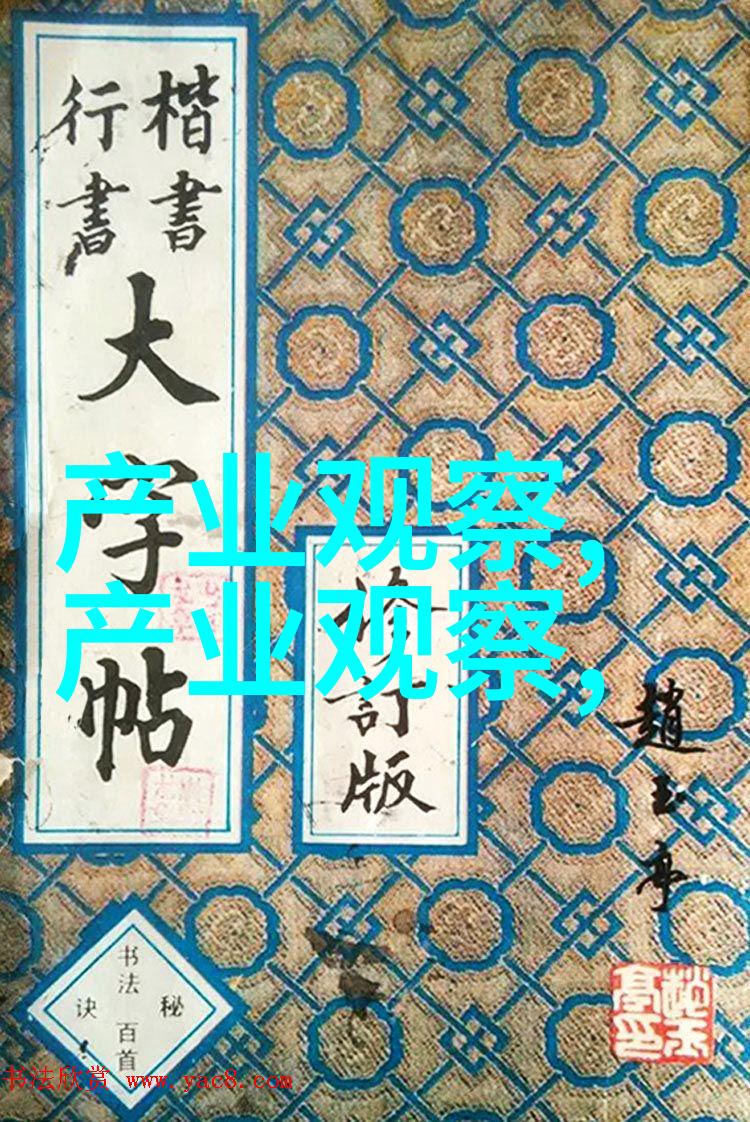 楷書
行書
大字帖
产业观察,
产业观察,
修訂版
趙玉亭
书法百首
秘诀
书法欣赏 www.yac8.com